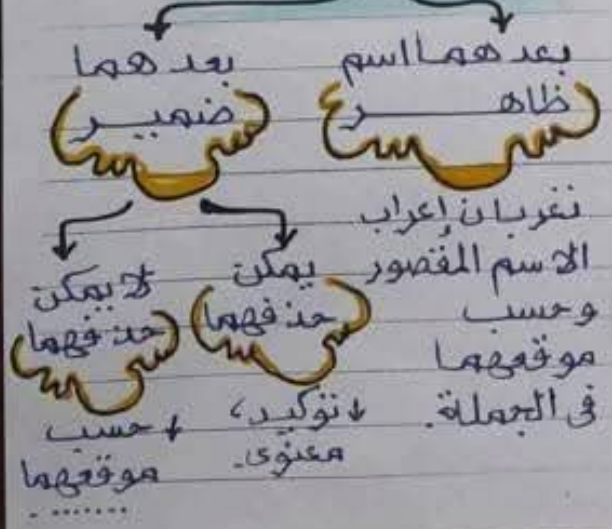 بعدهما اسم
ظاهر
نغربان إعراب
الاسم المقصور
وحسب
موقعهما
فى الجملة.
بعدهما
ضمير
يمكن
حذفهما
توكيد،
معنوى.
لا يمكن
حذفهما
حسب
موقعهما
.......